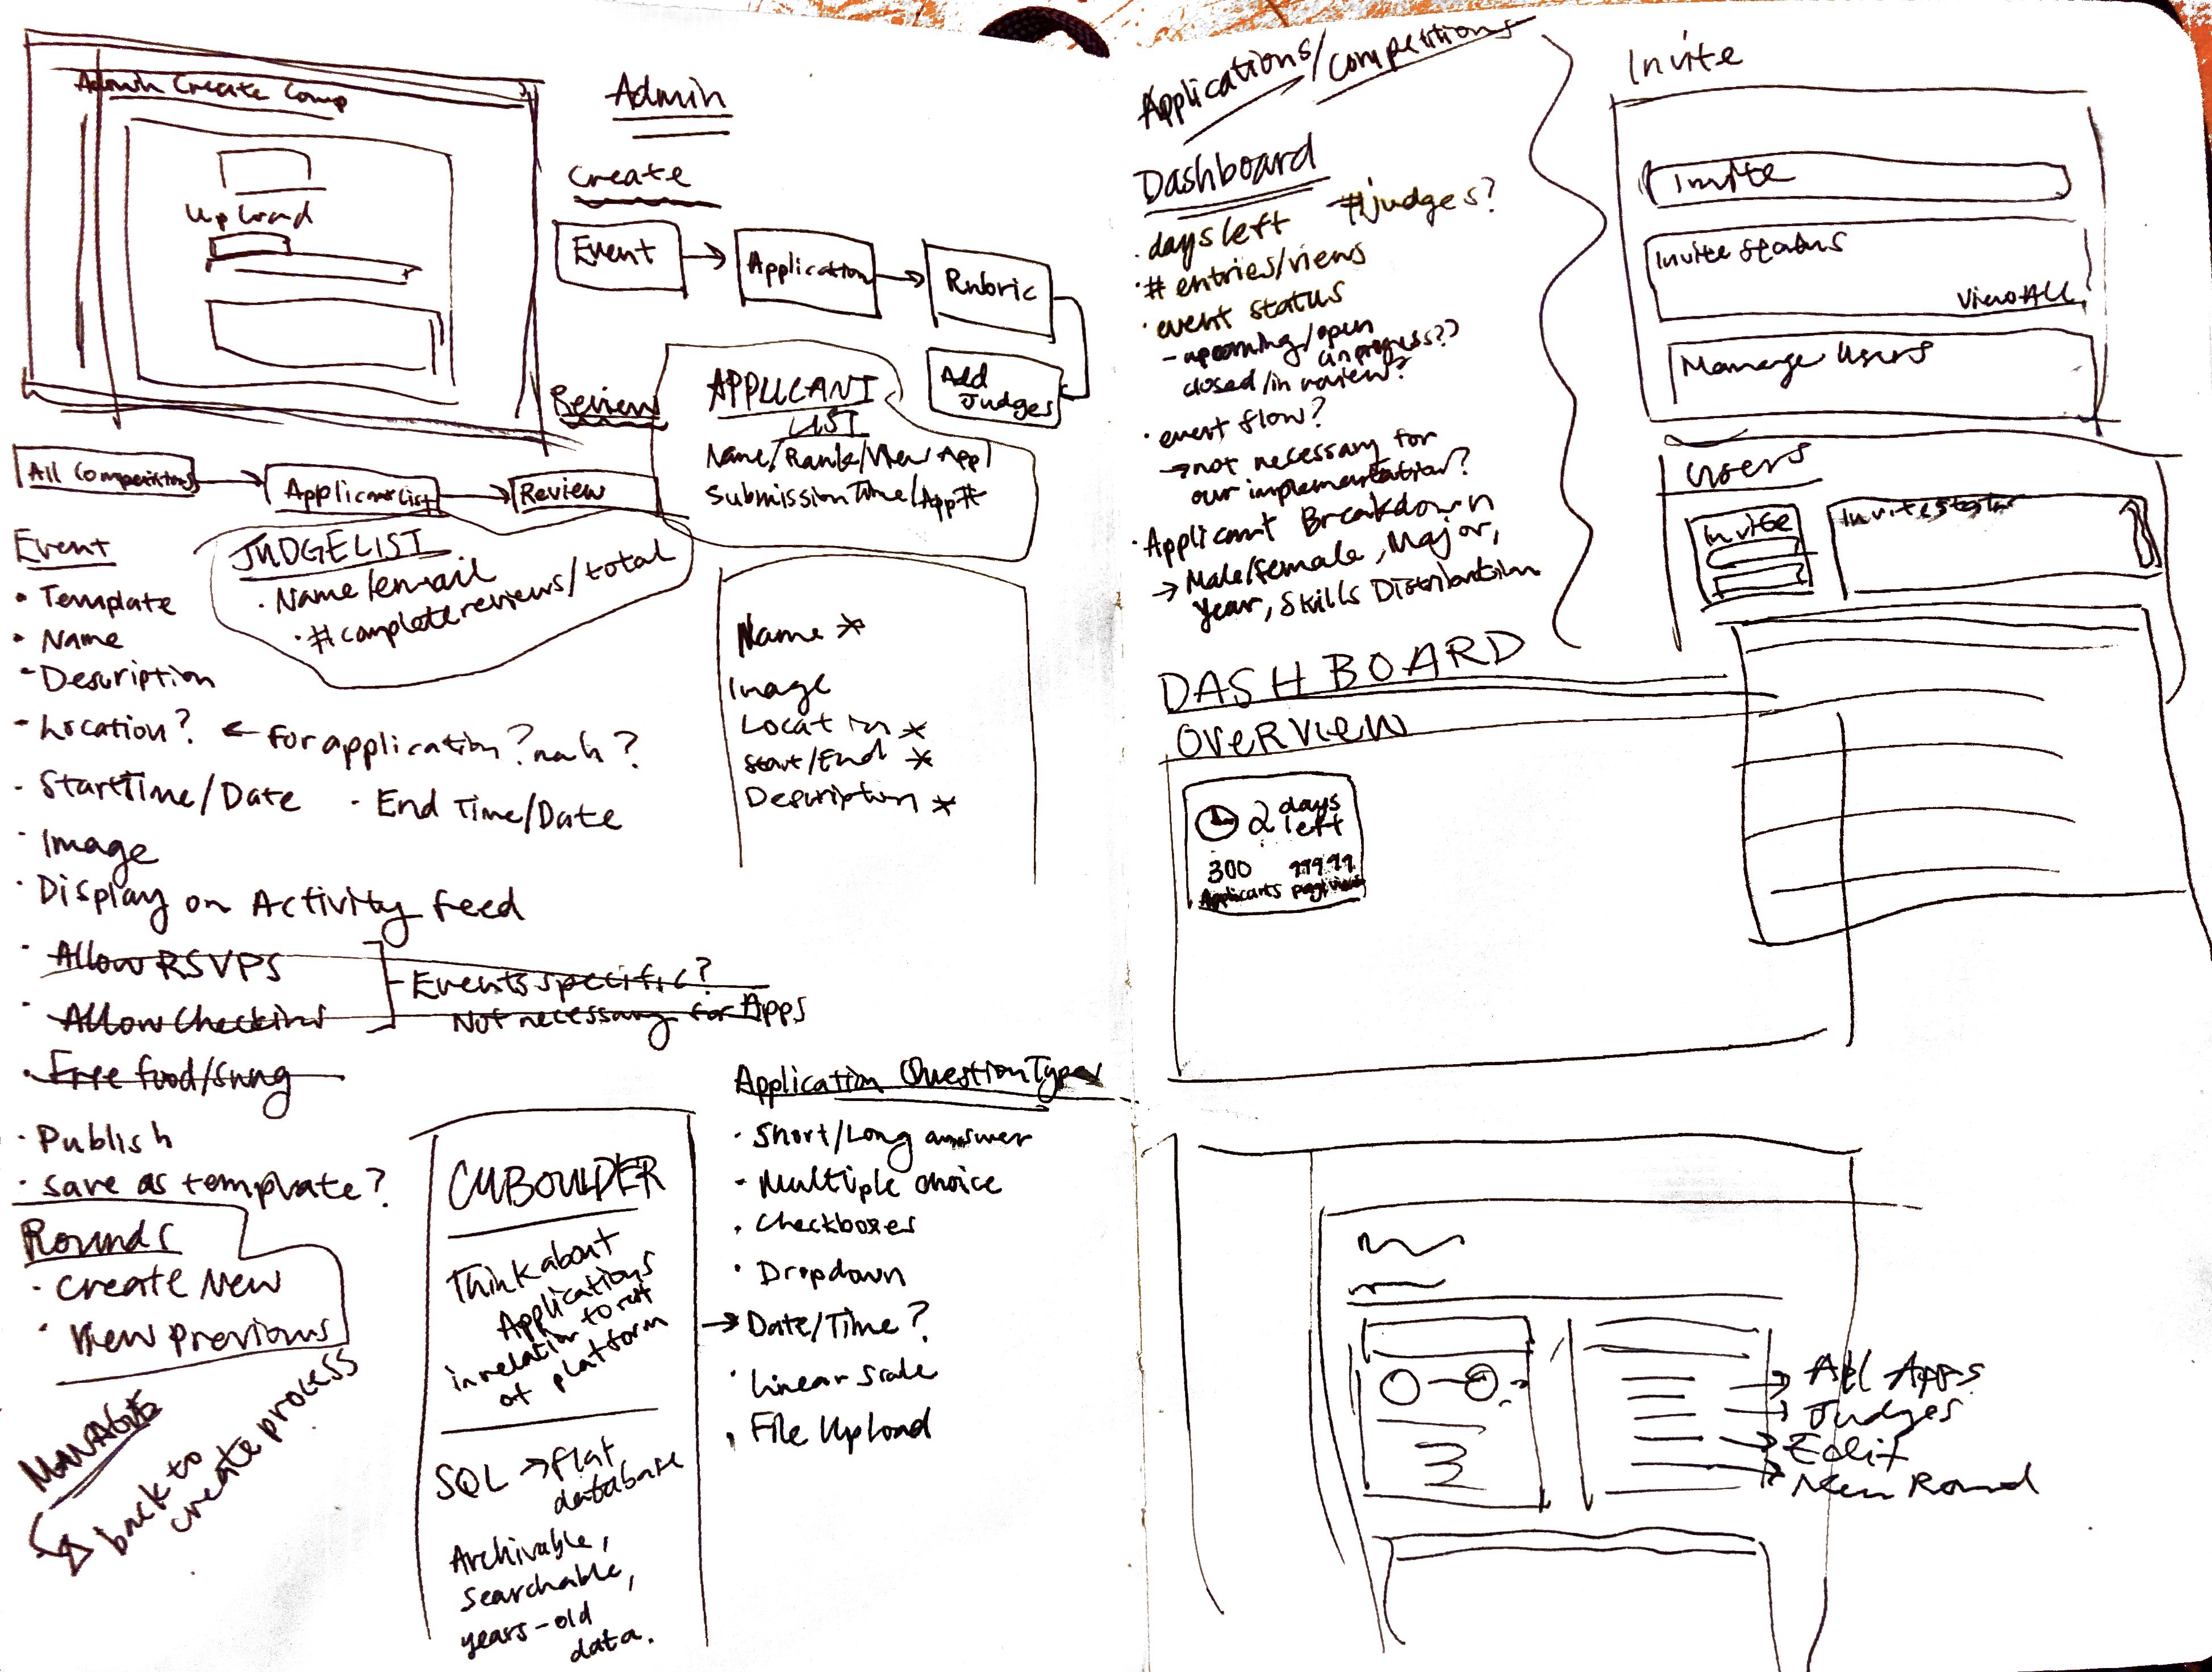 Admin Create Comp
Upload
Admin
Create
Event
Application
Rubric
Add
Judges
Review
APPLICANT
LIST
Name/Rank/View App/
Submission Time/App#
All Competitions
Applicant List
Review
JUDGE LIST
· Name/email
· # complete reviews/total
Event
• Template
• Name
- Description
- Location? ← for application? nah?
· Start Time/Date · End Time/Date
· Image
· Display on Activity Feed
· Allow RSVPS
· Allow Checkins
Events specific?
Not necessary for Apps
· Free food/swag
· Publish
· save as template?
Rounds
· Create New
· View previous
MANAGE
back to
create process
Name *
Image
Location *
Start/End *
Description *
CUBOULDER
Think about
Applications
in relation to rest
of platform
SQL → flat
database
Archivable,
searchable,
years-old
data.
Application Question Types
· Short/Long answer
· Multiple choice
· Checkboxes
· Dropdown
→ Date/Time?
· Linear Scale
· File Upload
Applications/Competitions
Dashboard
· days left #judges?
· # entries/views
· event status
- upcoming/open
(in progress??)
closed/in review?
· event flow?
→ not necessary for
our implementation?
· Applicant Breakdown
→ Male/female, Major,
Year, Skills Distribution
Invite
Invite
Invite Status
View ALL
Manage Users
Users
Invite
Invite Status
DASHBOARD
OVERVIEW
2 days
left
300
Applicants pageviews
All Apps
Judges
Edit
New Round